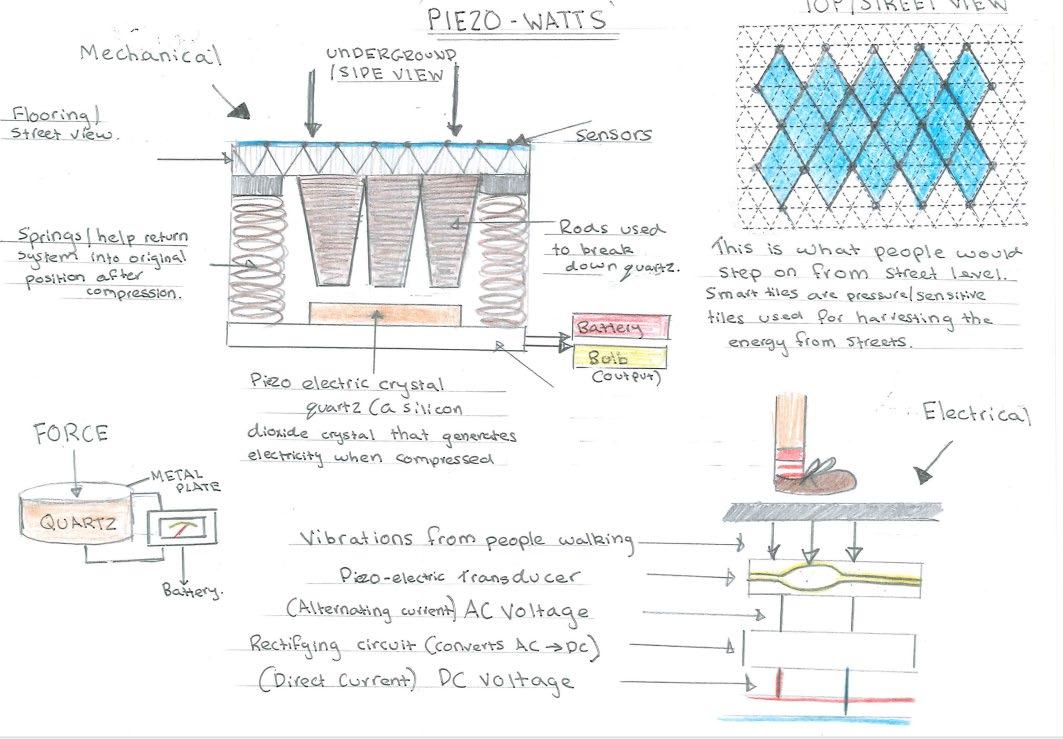 PIEZO-WATTS
TOP/STREET VIEW
Mechanical
UNDERGROUND
/SIDE VIEW
Flooring/
Street view.
Sensors
Springs/help return
system into original
position after
compression.
Rods used
to break
down quartz.
This is what people would
step on from street level.
Smart tiles are pressure/sensitive
tiles used for harvesting the
energy from streets.
Battery
Bulb
(output)
Piezo electric crystal
quartz (a silicon
dioxide crystal that generates
electricity when compressed
Electrical
FORCE
METAL
PLATE
QUARTZ
Battery.
Vibrations from people walking
Piezo-electric Transducer
(Alternating current) AC Voltage
Rectifying circuit (converts AC → DC)
(Direct Current) DC Voltage